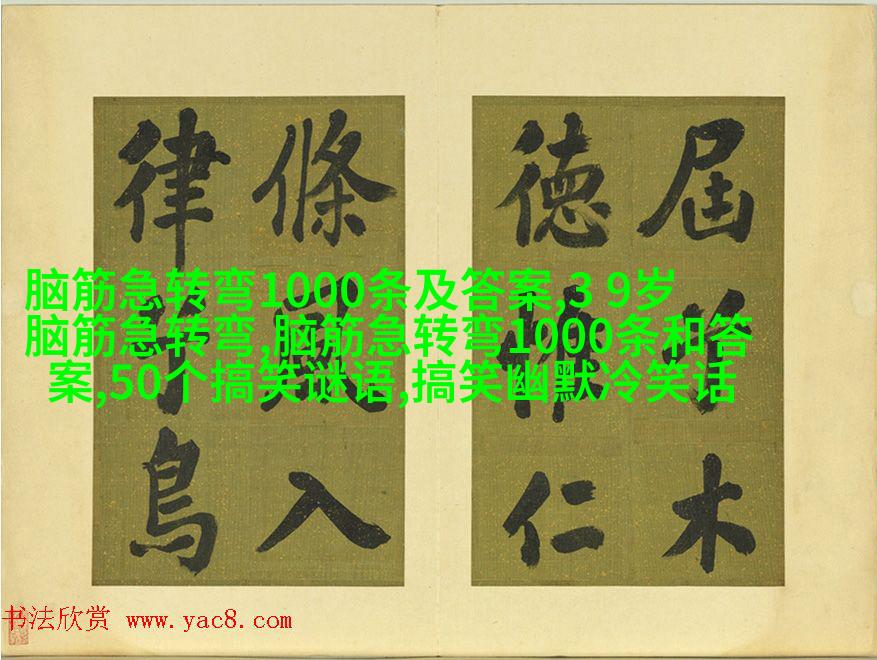 屆
木
德惟仁
條風入
律
鳥
脑筋急转弯1000条及答案,3 9岁
脑筋急转弯,脑筋急转弯1000条和答
案,50个搞笑谜语,搞笑幽默冷笑话
书法欣赏 www.yac8.com